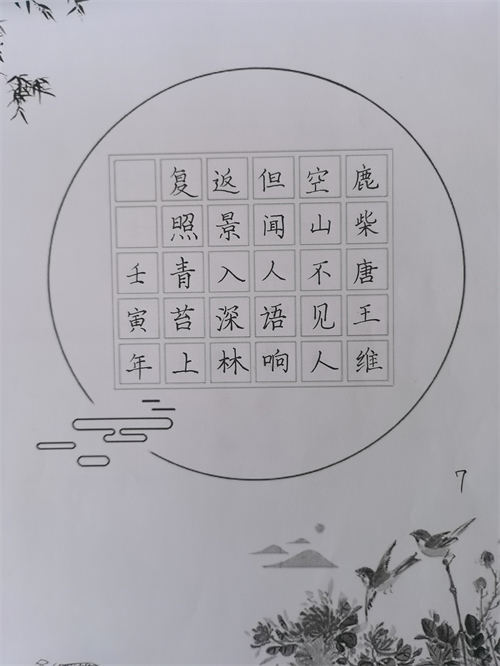 鹿柴唐王维
空山不见人
但闻人语响
返景入深林
复照青苔上
壬寅年
7